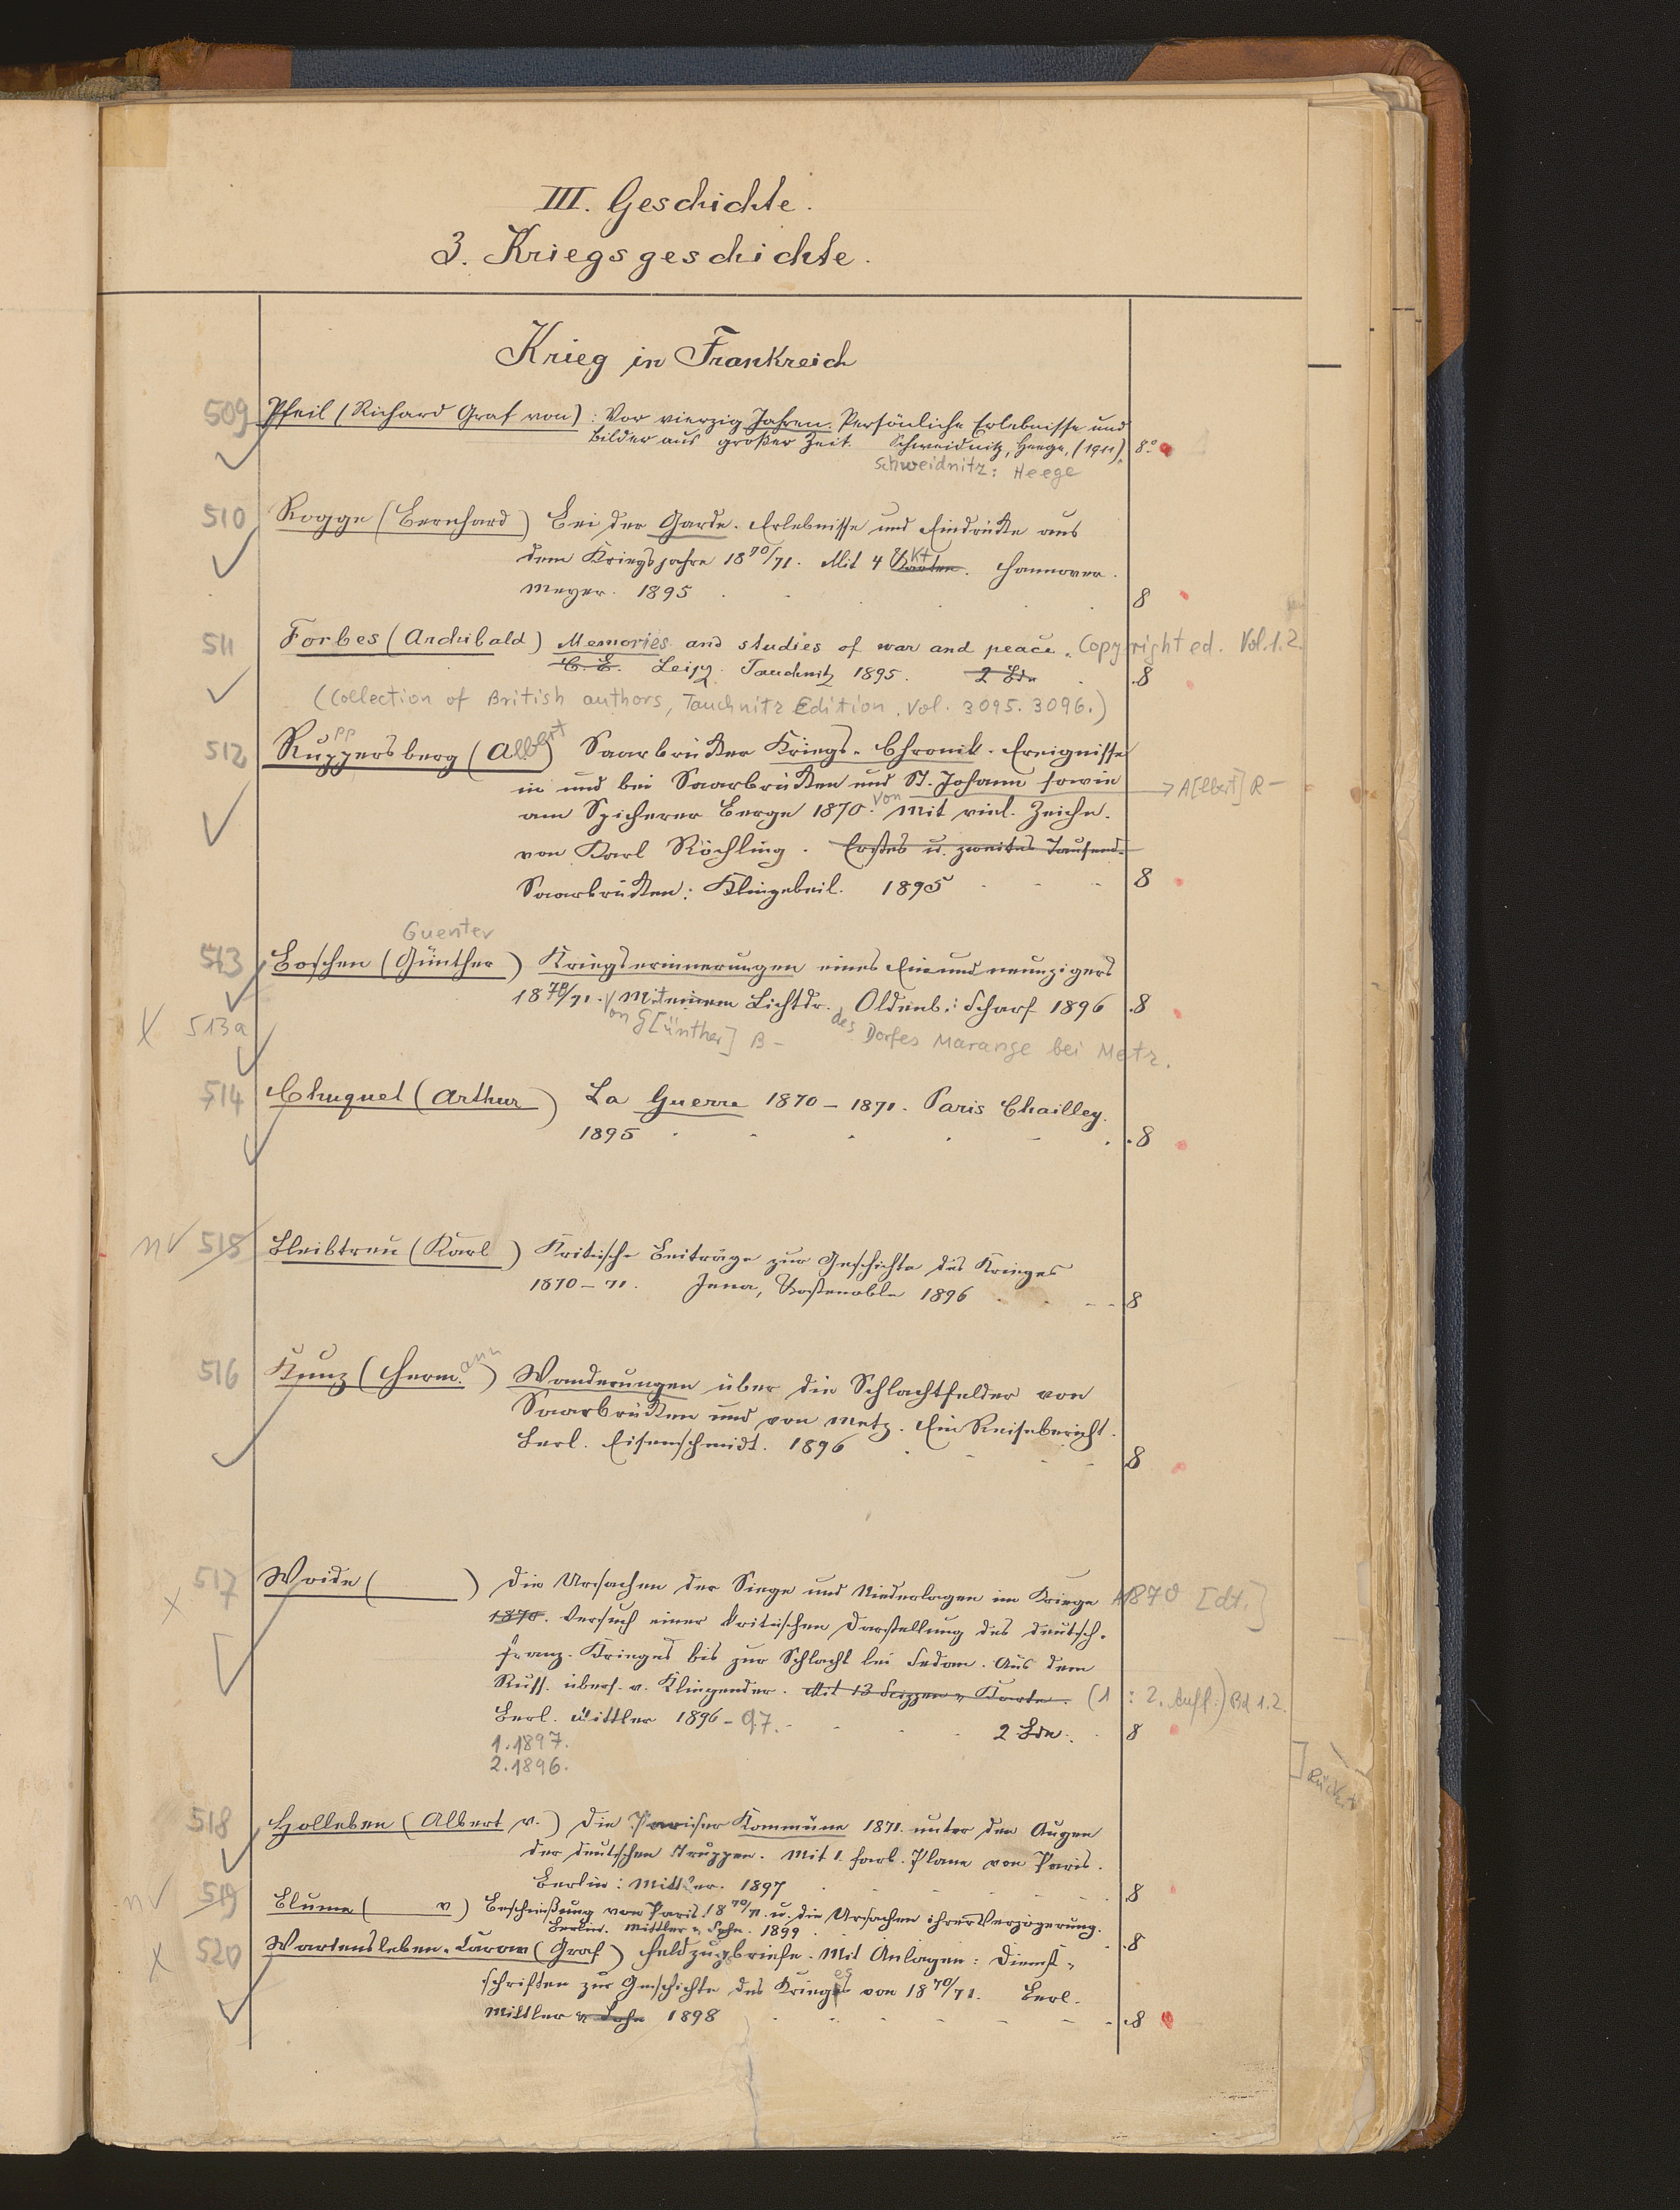 III. Geschichte.
3. Kriegsgeschichte.
Krieg in Frankreich
509 Pfeil (Richard Graf von): Vor vierzig Jahren. Persönliche Erlebnisse und
Bilder aus großer Zeit. Schweidnitz, Heege, (1911). 8°
Schweidnitz: Heege
510 Rogge (Bernhard) Bei der Garde. Erlebnisse und Eindrücke aus
dem Kriegsjahre 1870/71. Mit 4 Karten. Kt Hannover.
Meyer. 1895 8
511 Forbes (Archibald) Memories and studies of war and peace. Copyright ed. Vol. 1.2.
C. E. Leipz. Tauchnitz 1895. 2 Bde 8
(Collection of British authors, Tauchnitz Edition. Vol. 3095. 3096.)
512 Ruppersberg (Albert) Saarbrücker Kriegs-Chronik. Ereignisse
in und bei Saarbrücken und St. Johann sowie → A[lbert] R-
am Spicherer Berge 1870. Von Mit viel. Zeichn.
von Karl Röchling. Erstes u. zweites Tausend.
Saarbrücken: Klingebeil. 1895 8
Guenter
513 Boschen (Günther) Kriegserinnerungen eines Einundneunzigers
1870/71. Mit einem Lichtdr. Oldenb.: Scharf 1896 8
513a Von G[ünther] B- des Dorfes Marange bei Metz.
514 Chuquet (Arthur) La Guerre 1870-1871. Paris Chailley.
1895 8
nv 515 Bleibtreu (Karl) Kritische Beiträge zur Geschichte des Krieges
1870-71. Jena, Costenoble 1896 8
516 Kunz (Hermann) Wanderungen über die Schlachtfelder von
Saarbrücken und von Metz. Ein Reisebericht.
Berl. Eisenschmidt. 1896 8
517 Woide ( ) Die Ursachen der Siege und Niederlagen im Kriege 1870 [dt.]
1870. Versuch einer kritischen Darstellung des deutsch-
franz. Krieges bis zur Schlacht bei Sedan. Aus dem
Russ. übers. v. Klingender. Mit 13 Scizzen u. Karte. (1: 2. Aufl.) Bd 1.2.
Berl. Mittler 1896-97. 2 Bde. 8
1. 1897.
2. 1896.
518 Holleben (Albert v.) Die Pariser Kommune 1871 unter den Augen
der deutschen Truppen. Mit 1. farb. Plane von Paris.
Berlin: Mittler. 1897 8
nv 519 Blume ( v) Beschießung von Paris 1870/71. u. die Ursachen ihrer Verzögerung.
Berlin. Mittler u. Sohn. 1899 8
520 Wartensleben-Carow (Graf) Feldzugsbriefe. Mit Anlagen: Dienst-
schriften zur Geschichte des Krieges von 1870/71. Berl.
Mittler u. Sohn 1898 8